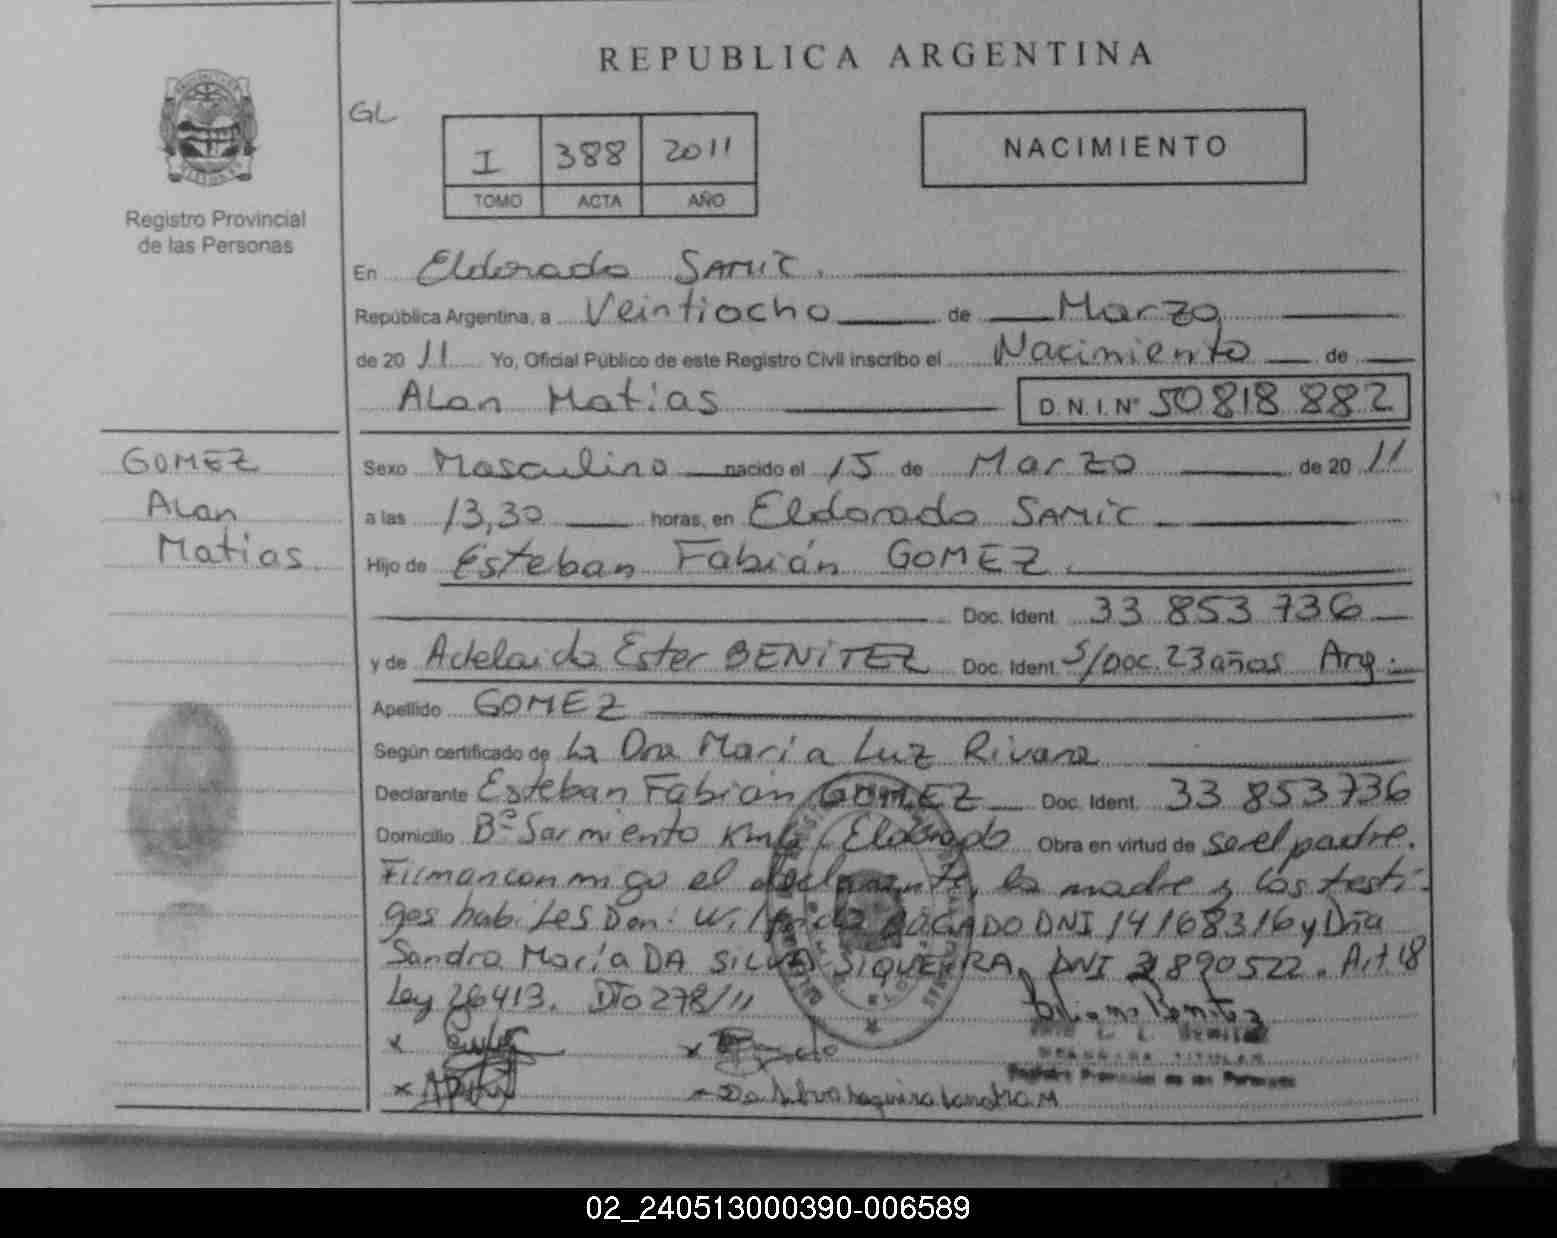 REPUBLICA ARGENTINA
Registro Provincial
de las Personas
GL
I 388 2011
TOMO ACTA AÑO
NACIMIENTO
En Eldorado SAMIC.
República Argentina, a Veintiocho de Marzo
de 2011 Yo, Oficial Público de este Registro Civil inscribo el Nacimiento de
Alan Matias D.N.I.Nº 50818 882
GOMEZ
Alan
Matias
Sexo Masculino nacido el 15 de Marzo de 2011
a las 13,30 horas, en Eldorado SAMIC
Hijo de Esteban Fabián GOMEZ.
Doc. Ident. 33 853 736
y de Adelaida Ester BENITEZ Doc. Ident. S/Doc. 23 años Arg.
Apellido GOMEZ
Según certificado de La Dra María Luz Rivara
Declarante Esteban Fabian GOMEZ Doc. Ident. 33 853736
Domicilio Bº Sarmiento Km Eldorado Obra en virtud de ser el padre.
Firman conmigo el declarante, la madre y los testi-
gos habiLes Don: DNI 14168316 y Dña
Sandra María DA SILVA SIQUEIRA, DNI Art 18
Ley 26413. DTO 278/11
Registro Provincial de las Personas
02_240513000390-006589